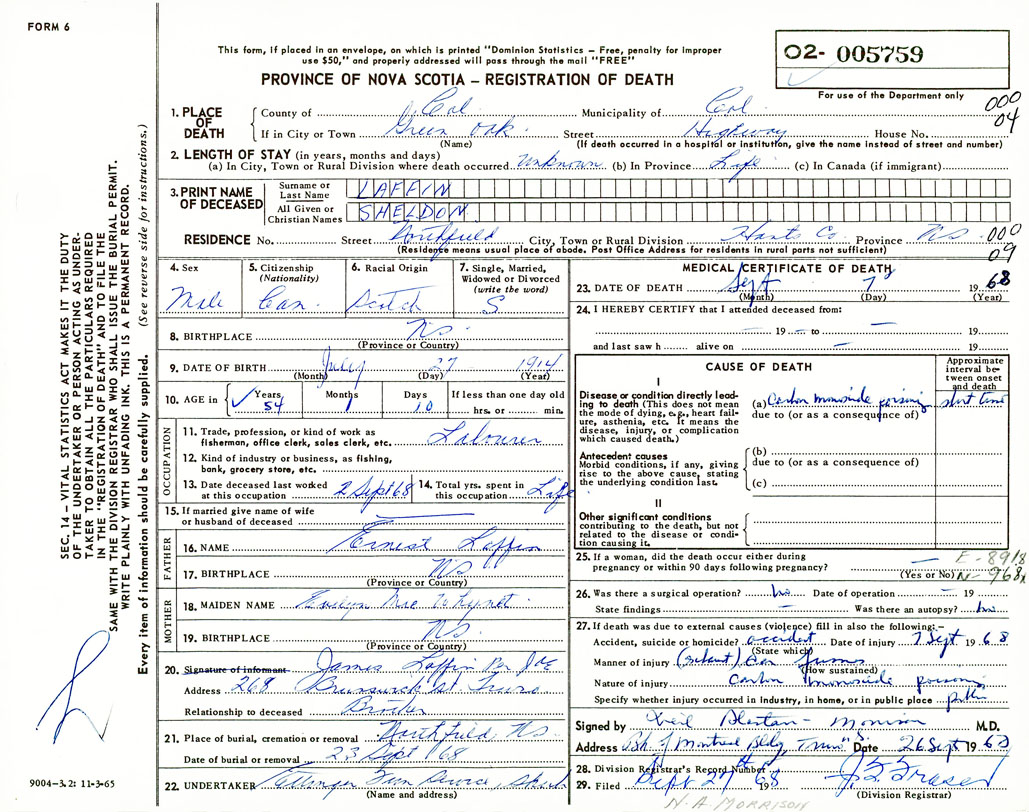 FORM 6
This form, if placed in an envelope, on which is printed "Dominion Statistics – Free, penalty for improper
use $50," and properly addressed will pass through the mail "FREE"
PROVINCE OF NOVA SCOTIA – REGISTRATION OF DEATH
O2- 005759
For use of the Department only
000
04
1. PLACE OF DEATH
County of Col. Municipality of Col.
If in City or Town Green Oak Street Highway House No.
(Name) (If death occurred in a hospital or institution, give the name instead of street and number)
2. LENGTH OF STAY (in years, months and days)
(a) In City, Town or Rural Division where death occurred Unknown (b) In Province Life (c) In Canada (if immigrant)
3. PRINT NAME OF DECEASED
Surname or Last Name LAFFIN
All Given or Christian Names SHELDON
RESIDENCE No. Street Northfield City, Town or Rural Division Hants Co. Province NS
(Residence means usual place of abode. Post Office Address for residents in rural parts not sufficient)
000
09
4. Sex Male
5. Citizenship (Nationality) Can
6. Racial Origin Scotch
7. Single, Married, Widowed or Divorced (write the word) S
8. BIRTHPLACE NS
(Province or Country)
9. DATE OF BIRTH July 27 1914
(Month) (Day) (Year)
10. AGE in Years 54 Months 1 Days 10 If less than one day old hrs. or min.
OCCUPATION
11. Trade, profession, or kind of work as
fisherman, office clerk, sales clerk, etc. Labourer
12. Kind of industry or business, as fishing,
bank, grocery store, etc.
13. Date deceased last worked at this occupation 2 Sept 68
14. Total yrs. spent in this occupation Life
15. If married give name of wife
or husband of deceased
FATHER
16. NAME Ernest Laffin
17. BIRTHPLACE NS
(Province or Country)
MOTHER
18. MAIDEN NAME Evelyn Mae
19. BIRTHPLACE NS
(Province or Country)
20. Signature of informant James Laffin Per
Address 268 Brunswick St. Truro
Relationship to deceased Brother
21. Place of burial, cremation or removal Northfield NS
Date of burial or removal 23 Sept 68
22. UNDERTAKER
(Name and address)
MEDICAL CERTIFICATE OF DEATH
23. DATE OF DEATH Sept 7 1968
(Month) (Day) (Year)
24. I HEREBY CERTIFY that I attended deceased from:
19 – to 19
and last saw h alive on – 19
CAUSE OF DEATH
Approximate interval between onset and death
I
Disease or condition directly leading to death (This does not mean the mode of dying, e.g., heart failure, asthenia, etc. It means the disease, injury, or complication which caused death.)
(a) Carbon monoxide poisoning short time
due to (or as a consequence of)
Antecedent causes
Morbid conditions, if any, giving rise to the above cause, stating the underlying condition last.
(b)
due to (or as a consequence of)
(c)
II
Other significant conditions
contributing to the death, but not related to the disease or condition causing it.
25. If a woman, did the death occur either during
pregnancy or within 90 days following pregnancy? –
(Yes or No)
E-8918
N-968
26. Was there a surgical operation? no Date of operation – 19
State findings – Was there an autopsy? no
27. If death was due to external causes (violence) fill in also the following:–
Accident, suicide or homicide? accident Date of injury 7 Sept 1968
(State which)
Manner of injury car fumes
(How sustained)
Nature of injury Carbon monoxide poisoning
Specify whether injury occurred in industry, in home, or in public place public
Signed by Morrison M.D.
Address Bk of Montreal Bldg, Truro Date 26 Sept 1968
28. Division Registrar's Record Number
29. Filed Sept 27th 1968
(Division Registrar)
N. A MORRISON
SEC. 14 – VITAL STATISTICS ACT MAKES IT THE DUTY
OF THE UNDERTAKER OR PERSON ACTING AS UNDER-
TAKER TO OBTAIN ALL THE PARTICULARS REQUIRED
IN THE "REGISTRATION OF DEATH" AND TO FILE THE
SAME WITH THE DIVISION REGISTRAR WHO SHALL ISSUE THE BURIAL PERMIT.
WRITE PLAINLY WITH UNFADING INK. THIS IS A PERMANENT RECORD.
Every item of information should be carefully supplied. (See reverse side for instructions.)
9004–3.2: 11-3-65